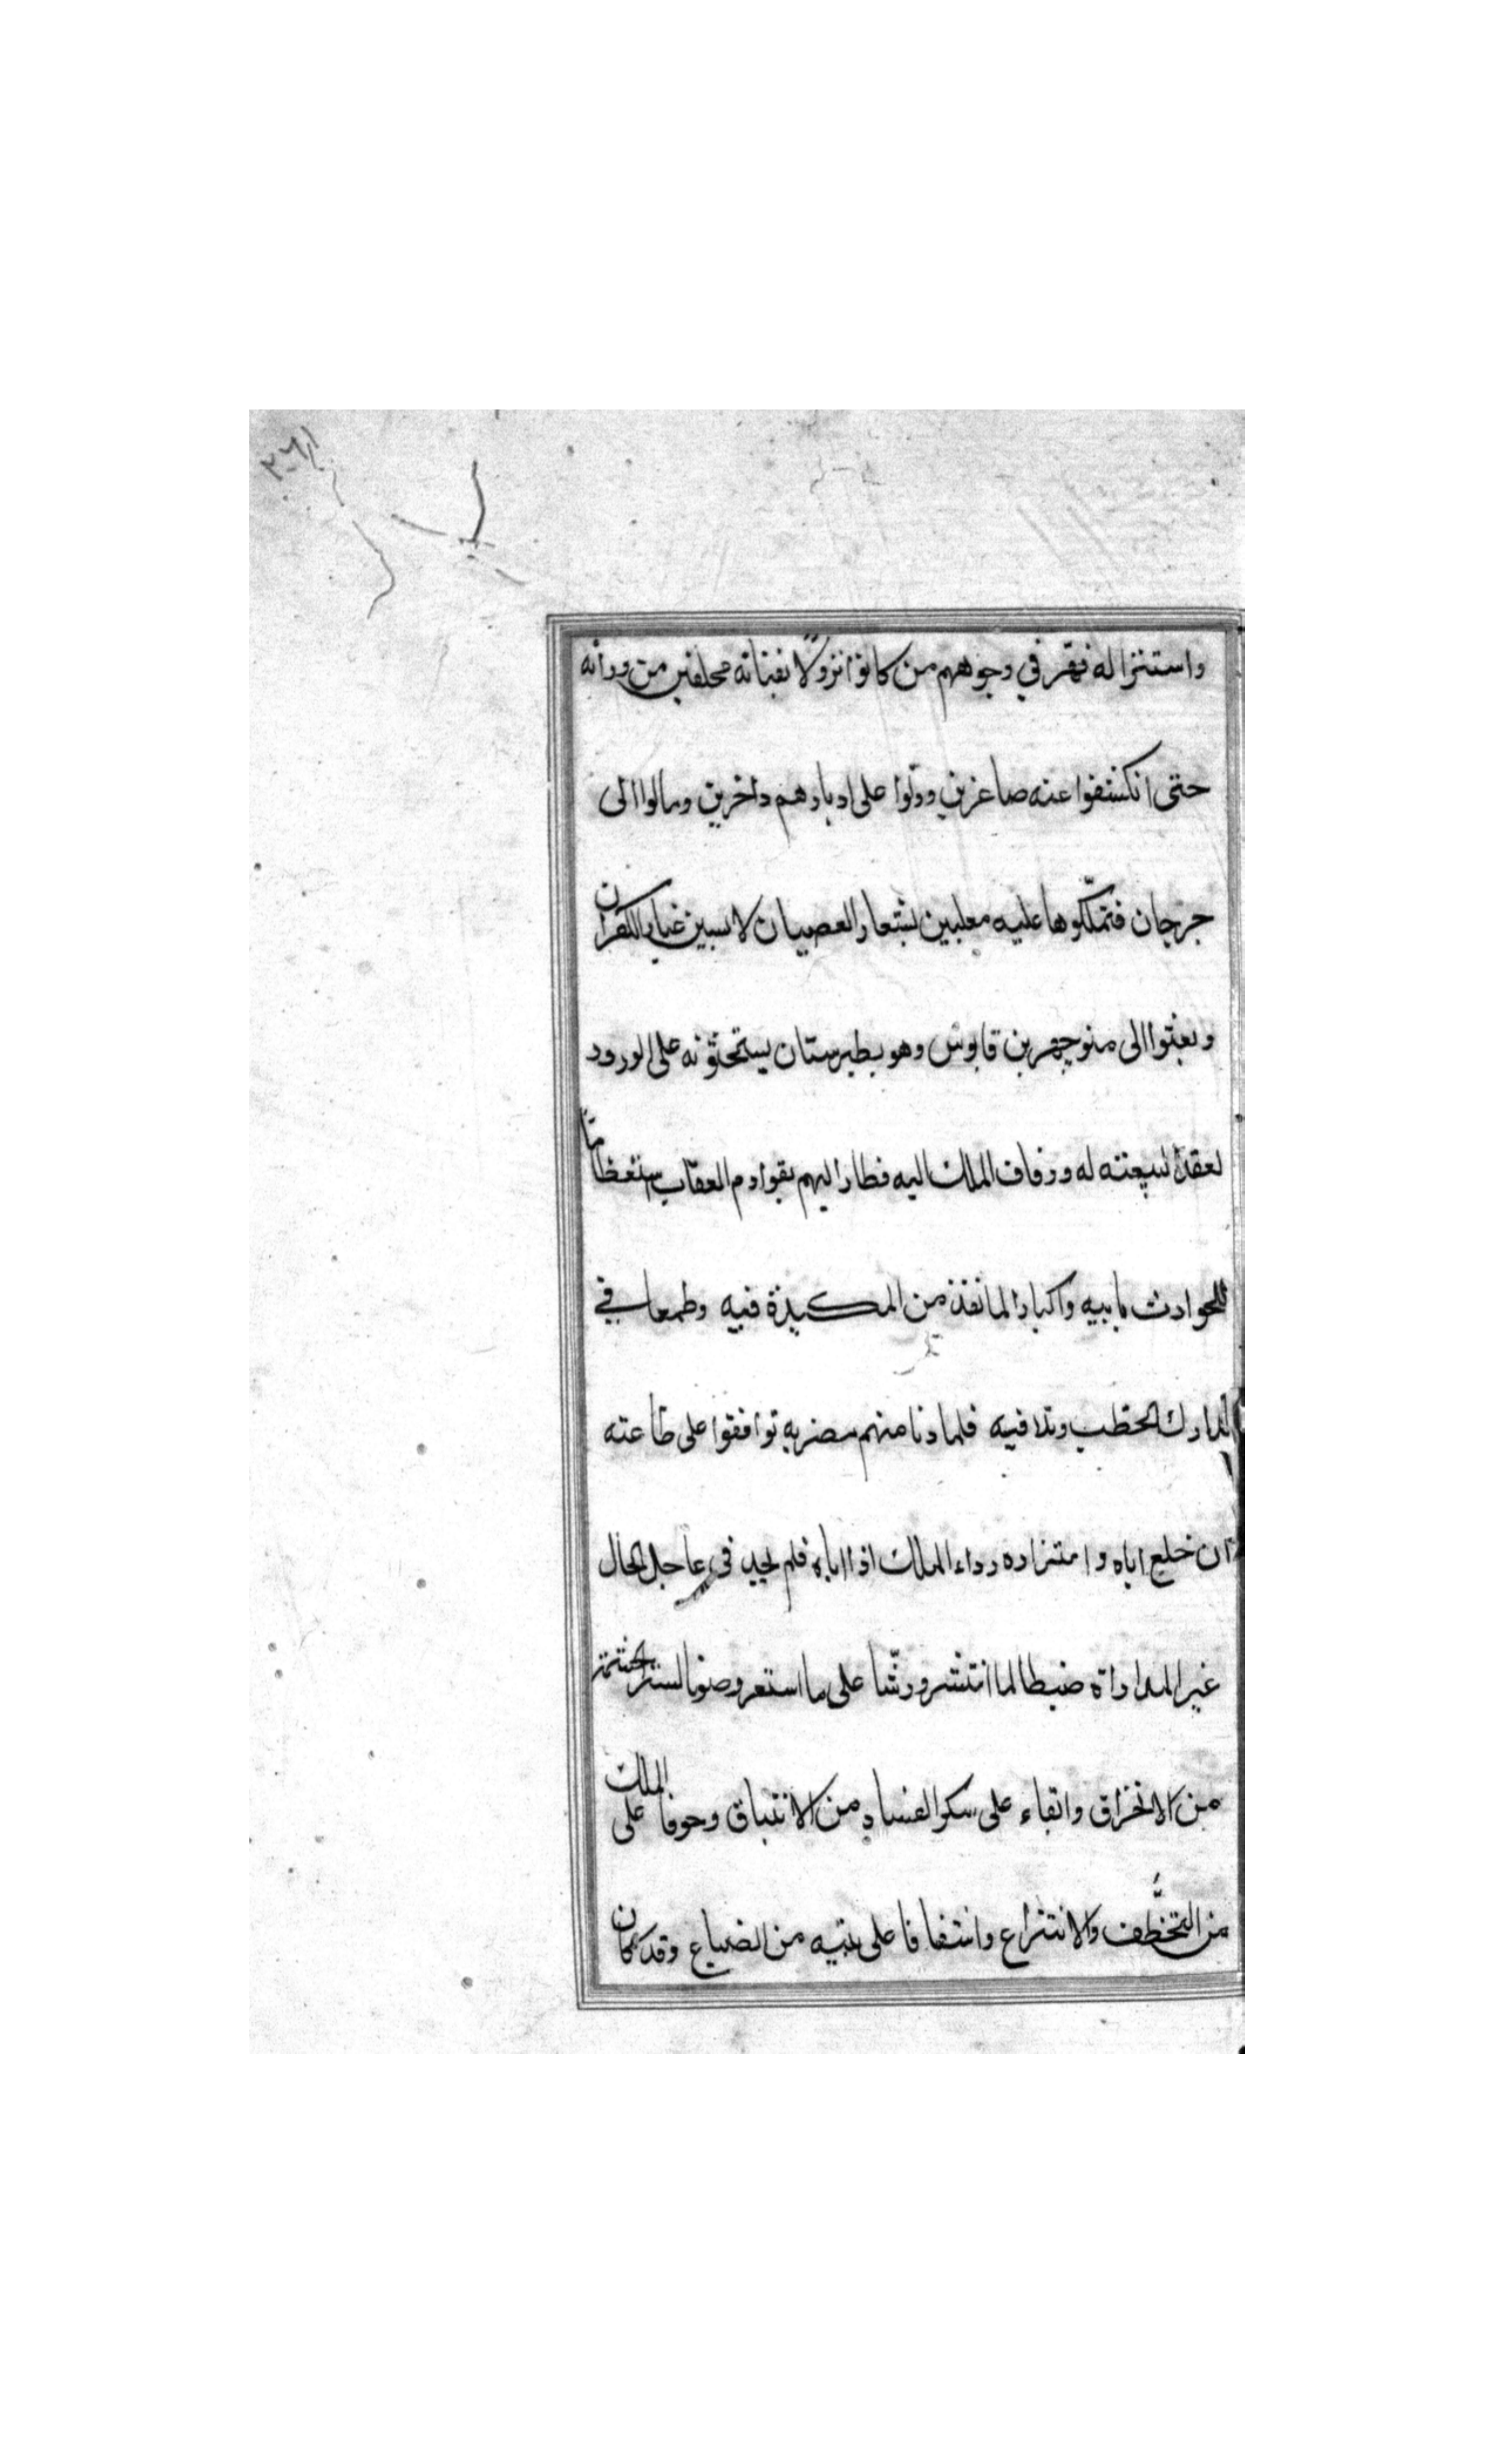 واستنزاله فهتر في وجوههم من كانوا نزولا بفنائه محلقين من ورائه
حتى انكشفوا عنه صاغرين وولوا على ادبارهم داخرين ومالوا الى
جرجان فتملّكوها عليه معلبين بشعار العصيان لابسين غيار الكفران
وبعثوا الى منوچهر بن قابوس وهو بطبرستان يستحثونه على الورود
لعقد البيعته له وزفاف الملك اليه فطار اليهم بقوادم العقاب استعظامًا
للحوادث بابيه واكبارا لما نفذ من المكيدة فيه وطمعا في
تدارك الخطب وتلافيه فلما دنا منهم مضربه توافقوا على طاعته
ان خلع اباه وامتراده رداء الملك اذا اباه فلم يجد في عاجل الحال
غير المداراة ضبطا لما انتشر ورمّا على ما استعر وصونا لستر الحشمة
من الانخراق وابقاء على سكر الفساد من الانبثاق وخوفا على الملك
من التخطُّف والانتزاع واشفاقا على بيته من الضياع وقد كان